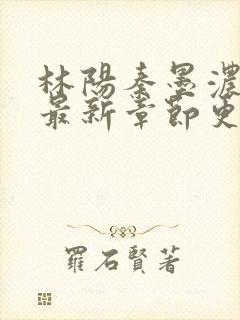 林陽秦墨濃
最新章節更
羅石賢著